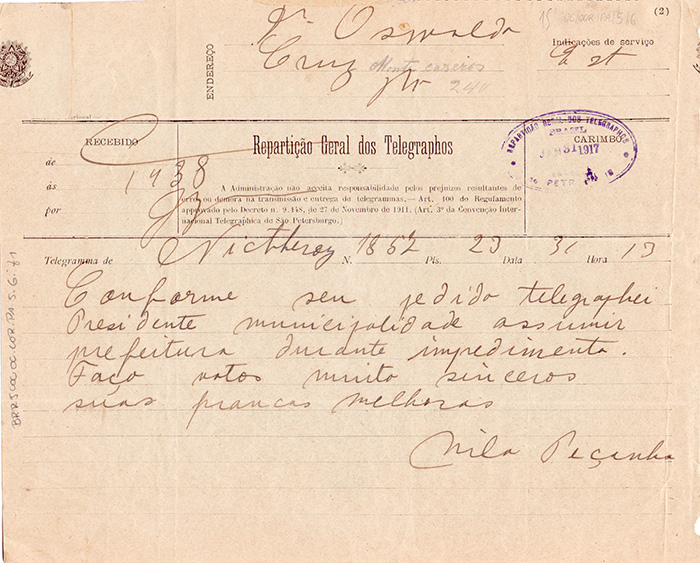 (2)
ENDEREÇO
Dr Oswaldo
Cruz
Monte caseros
240
Indicações de serviço
Est
RECEBIDO
de
ás 1938
por
Repartição Geral dos Telegraphos
A Administração não acceita responsabilidade pelos prejuizos resultantes de
erro ou demora na transmissão e entrega de telegrammas.— Art. 100 do Regulamento
approvado pelo Decreto n. 9.148, de 27 de Novembro de 1911. (Art. 3º da Convenção Inter-
nacional Telegraphica de São Petersburgo.)
CARIMBO
REPARTIÇÃO GERAL DOS TELEGRAPHOS
BRASIL
JAN 31 1917
Telegramma de Nictheroy N. 1852 Pls. 23 Data 31 Hora 13
Conforme seu pedido telegraphei
Presidente municipalidade assumir
prefeitura durante impedimento.
Faço votos muito sinceros
suas francas melhoras
Nilo Peçanha